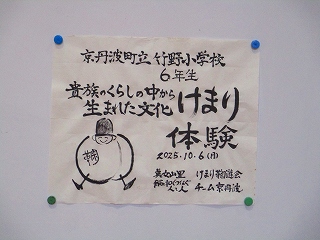 京丹波町立 竹野小学校
6年生
貴族のくらしの中から
生まれた文化 けまり
体験
2025.10.6(月)
けまり鞠遊会
チーム京丹波